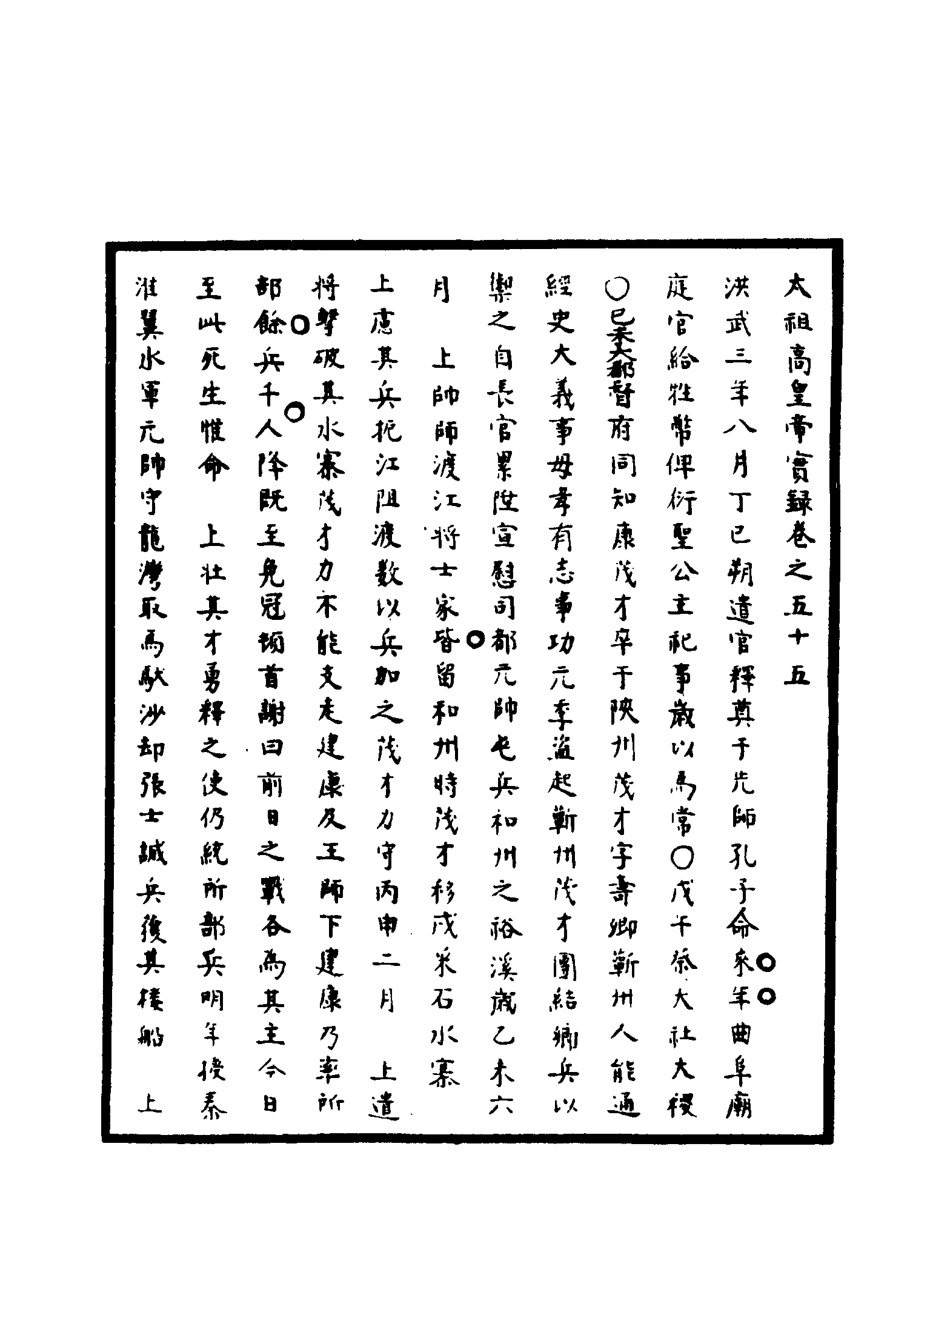 太祖高皇帝實錄卷之五十五
洪武三年八月丁巳朔遣官釋奠于先師孔子命來年曲阜廟
庭官給牲幣俾衍聖公主祀事歲以為常○戊午祭大社大稷
○己未大都督府同知康茂才卒于陝州茂才字壽卿蘄州人能通
經史大義事母孝有志事功元季盜起蘄州茂才團結鄉兵以
禦之自長官累陞宣慰司都元帥屯兵和州之裕溪歲乙未六
月　上帥師渡江將士家皆留和州時茂才移戍采石水寨
上慮其兵扼江阻渡數以兵加之茂才力守丙申二月　上遣
將擊破其水寨茂才力不能支走建康及王師下建康乃率所
部餘兵千人降既至免冠頓首謝曰前日之戰各為其主今日
至此死生惟命　上壯其才勇釋之使仍統所部兵明年授秦
淮翼水軍元帥守龍灣取馬馱沙却張士誠兵獲其樓船　上